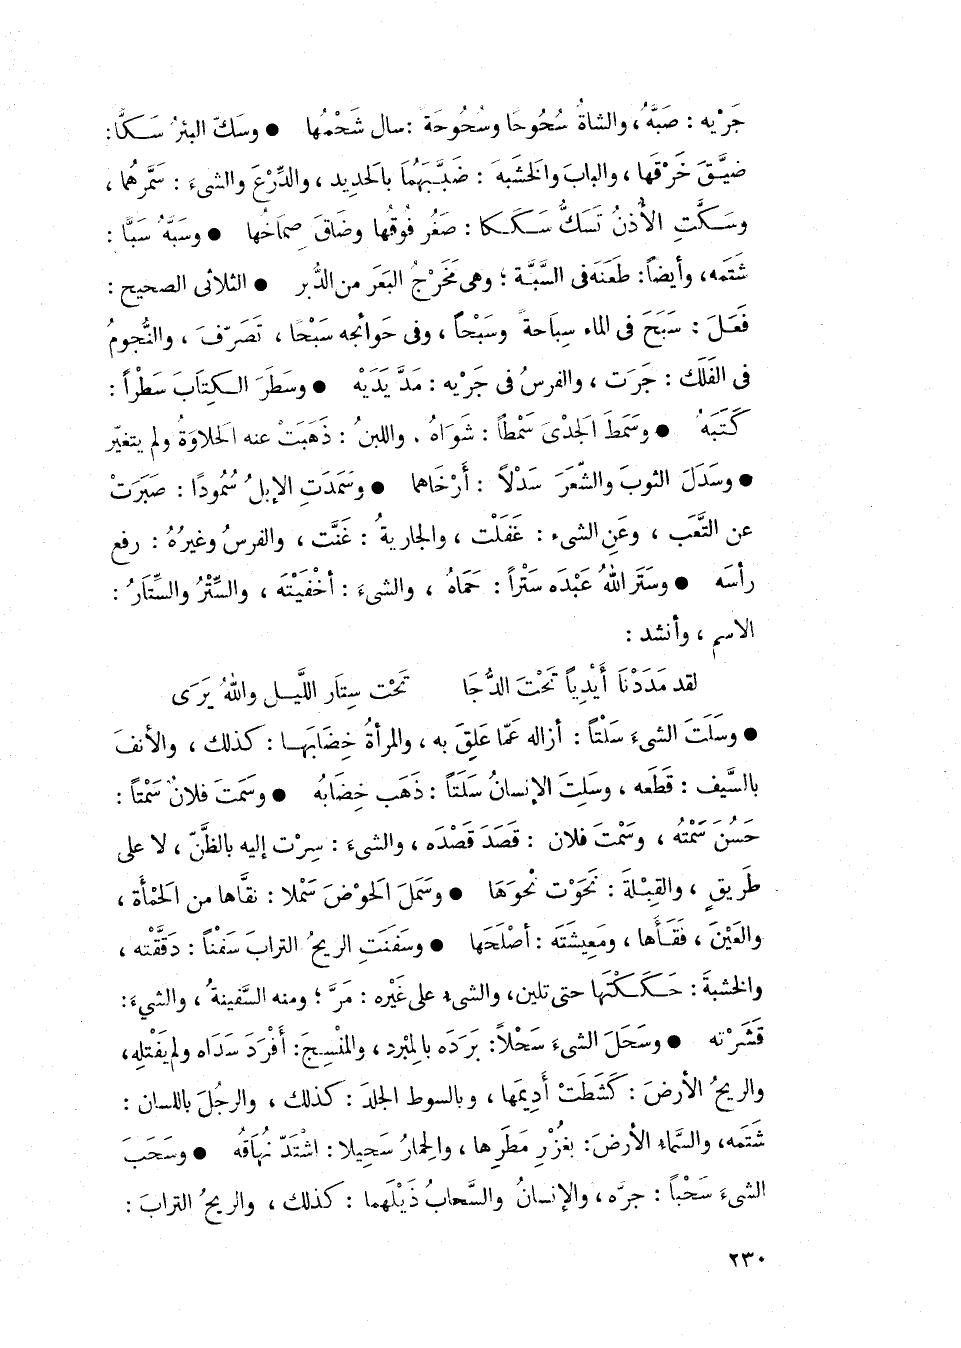 جَرْيه : صَبَّهُ ، والشاةُ سُحُوحًا وسُحُوحَة : سال شَحْمُها ● وسَكّ البئرُ سَكًّا :
ضيَّقَ خَرْقَها ، والبابَ والخشَبهَ : ضَبَّبَهُمَا بالحديد ، والدِّرْعَ والشىءَ : سَمَّرهُما ،
وسَكَّتِ الأُذنُ تَسَكُّ سَكَكا : صغُر فُوقُها وضَاقَ صِماخُها ● وسَبَّهُ سَبًّا :
شَتَمه ، وأيضاً : طَعَنَه فى السَّبَّة ؛ وهى مَخَرْجُ البَعَر من الدُّبر ● الثلاثى الصحيح :
فَعَلَ : سَبَحَ فى الماء سِباَحةً وسَبْحاً ، وفى حَوائجه سَبْحًا ، تَصَرّفَ ، والنُّجومُ
فى الفَلَك : جَرَت ، والفرسُ فى جَرْيه : مَدَّ يَدَيْه ● وسَطَرَ الكِتاَبَ سَطْراً :
كَتَبَهُ ● وسَمَطَ الجَدْىَ سَمْطاً : شَوَاهُ . واللبنُ : ذَهَبَتْ عنه الحَلاوَةُ ولم يتغيّر
● وسَدَلَ الثوبَ والشَّعَرَ سَدْلاً : أَرْخَاهما ● وسَمَدَتِ الإبلُ سُمُودًا : صَبَرَتْ
عن التَّعَب ، وعَنِ الشىء : غَفَلْت ، والجاريةُ : غَنَّت ، والفرسُ وغيرُهُ : رفع
رأسَه ● وسَتَر اللهُ عَبْدَه سَتْراً : حَمَاهُ ، والشىءَ : أخْفَيْتَه ، والسِّتْرُ والسِّتاَرُ :
الاسم ، وأنشد :
لقد مَدَدْنَا أَيْدِياً تَحْتَ الدُّجَا تَحْت سِتاَر اللَّيل واللهُ يَرَى
● وسَلَتَ الشىءَ سَلْتاً : أزاله عَمّا عَلِقَ به ، والمرأةُ خِضَابَها : كذلك ، والأنفَ
بالسَّيف : قَطَعه ، وسَلِتَ الإنسانُ سَلَتاً : ذَهَب خِضَابُه ● وسَمَتَ فلانٌ سَمْتاً :
حَسُنَ سَمْتُه ، وسَمْتَ فلان : قَصَدَ قَصْدَه ، والشىءَ : سِرْت إليه بالظَّنّ ، لا على
طَريقٍ ، والقِبْلةَ : نَحَوْت نْحوَهَا ● وسَمَلَ الحَوْضَ سَمْلا : نقَّاها من الحَمْأَة ،
والعَيْنَ ، فَقَأَها ، ومَعِيشَتَه : أصْلَحَها ● وسَفَنَتِ الريحُ الترابَ سَفْناً : دَقَّقْته ،
والخشبةَ : حَكَكْتَها حتى تلين، والشىء على غَيْره : مَرَّ ؛ ومنه السَّفينةُ ، والشيءَ :
قَشَرْته ● وسَحَلَ الشىءَ سَحْلاً : بَرَدَه بالمِبْرد ، والمنْسِجَ : أَفْرَدَ سَدَاه ولم يَفْتله ،
والريحُ الأرضَ : كَشَطَتْ أَدِيمَها ، وبالسوط الجلدَ : كذلك ، والرجُلَ باللسان :
شَتَمه، والسَّماء الأرضَ : بغُزْرِ مَطَرِها ، والحمارُ سَحِيلا : اشْتَدّ نُهَاقُه ● وسَحَبَ
الشىءَ سَحْباً : جرَّه ، والإنسانُ والسَّحابُ ذَيْلَهما : كذلك ، والريحُ الترابَ :
٢٣٠